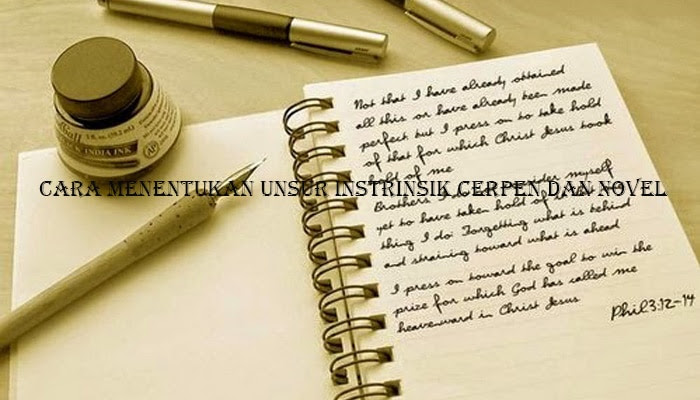 INDIA INK
CARA MENENTUKAN UNSUR INSTRINSIK CERPEN DAN NOVEL
Not that I have already obtained
all this or have already been made
perfect but I press on to take hold
of that for which Christ Jesus took
hold of me
Brothers I do myself
yet to have taken hold of
thing I do: Forgetting what is behind
and straining toward what is ahead
I press on toward the goal to win the
prize for which God has called me
heavenward in Christ Jesus
Phil 3:12-14